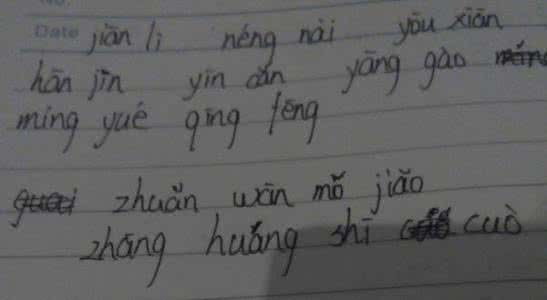 Date jiān lì néng nài yōu xiān
hān jīn yīn dǎn yāng gào
míng yuè qīng fēng
zhuǎn wān mǒ jiǎo
zhāng huáng shī cuò